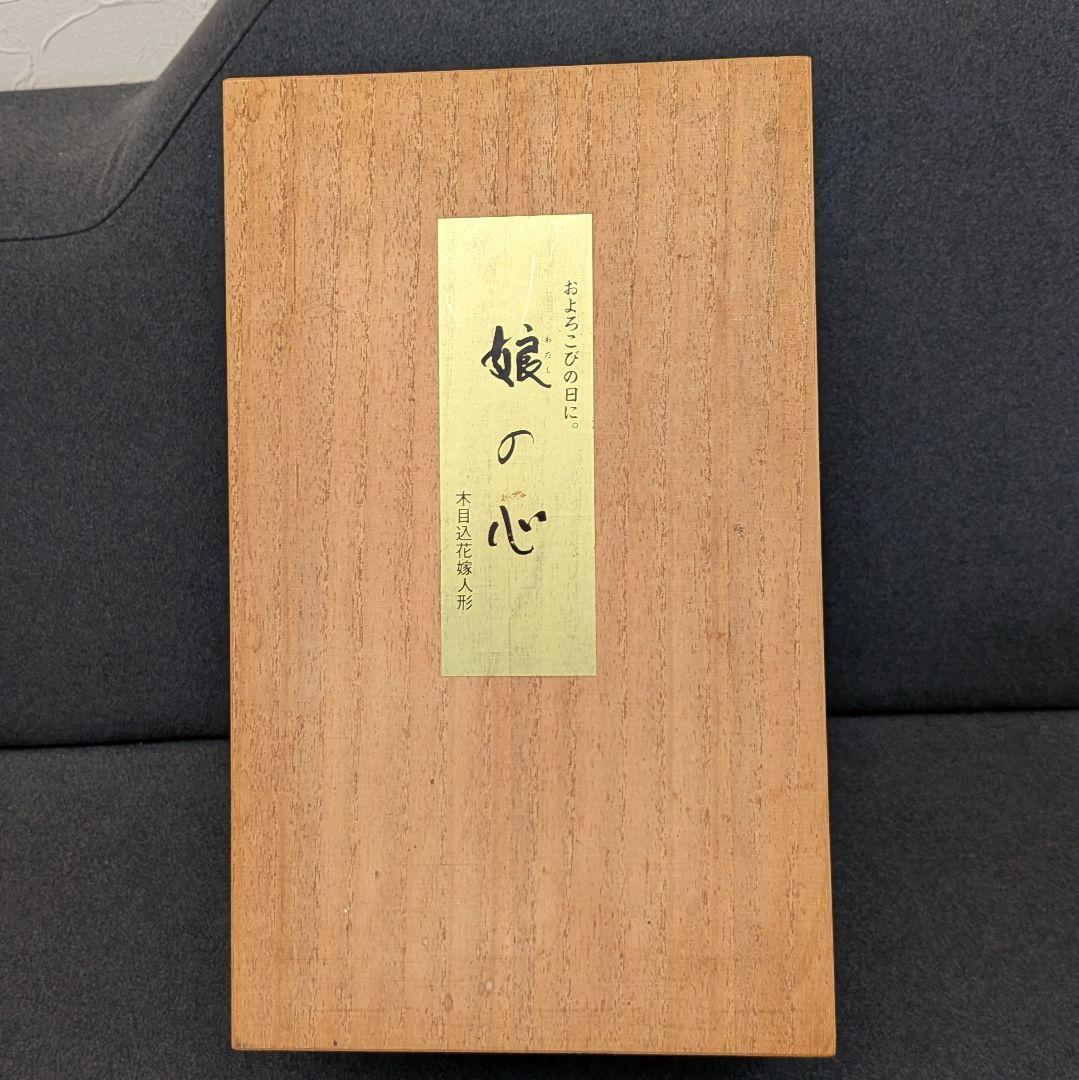 およろこびの日に。
わたし
娘の心
木目込花嫁人形